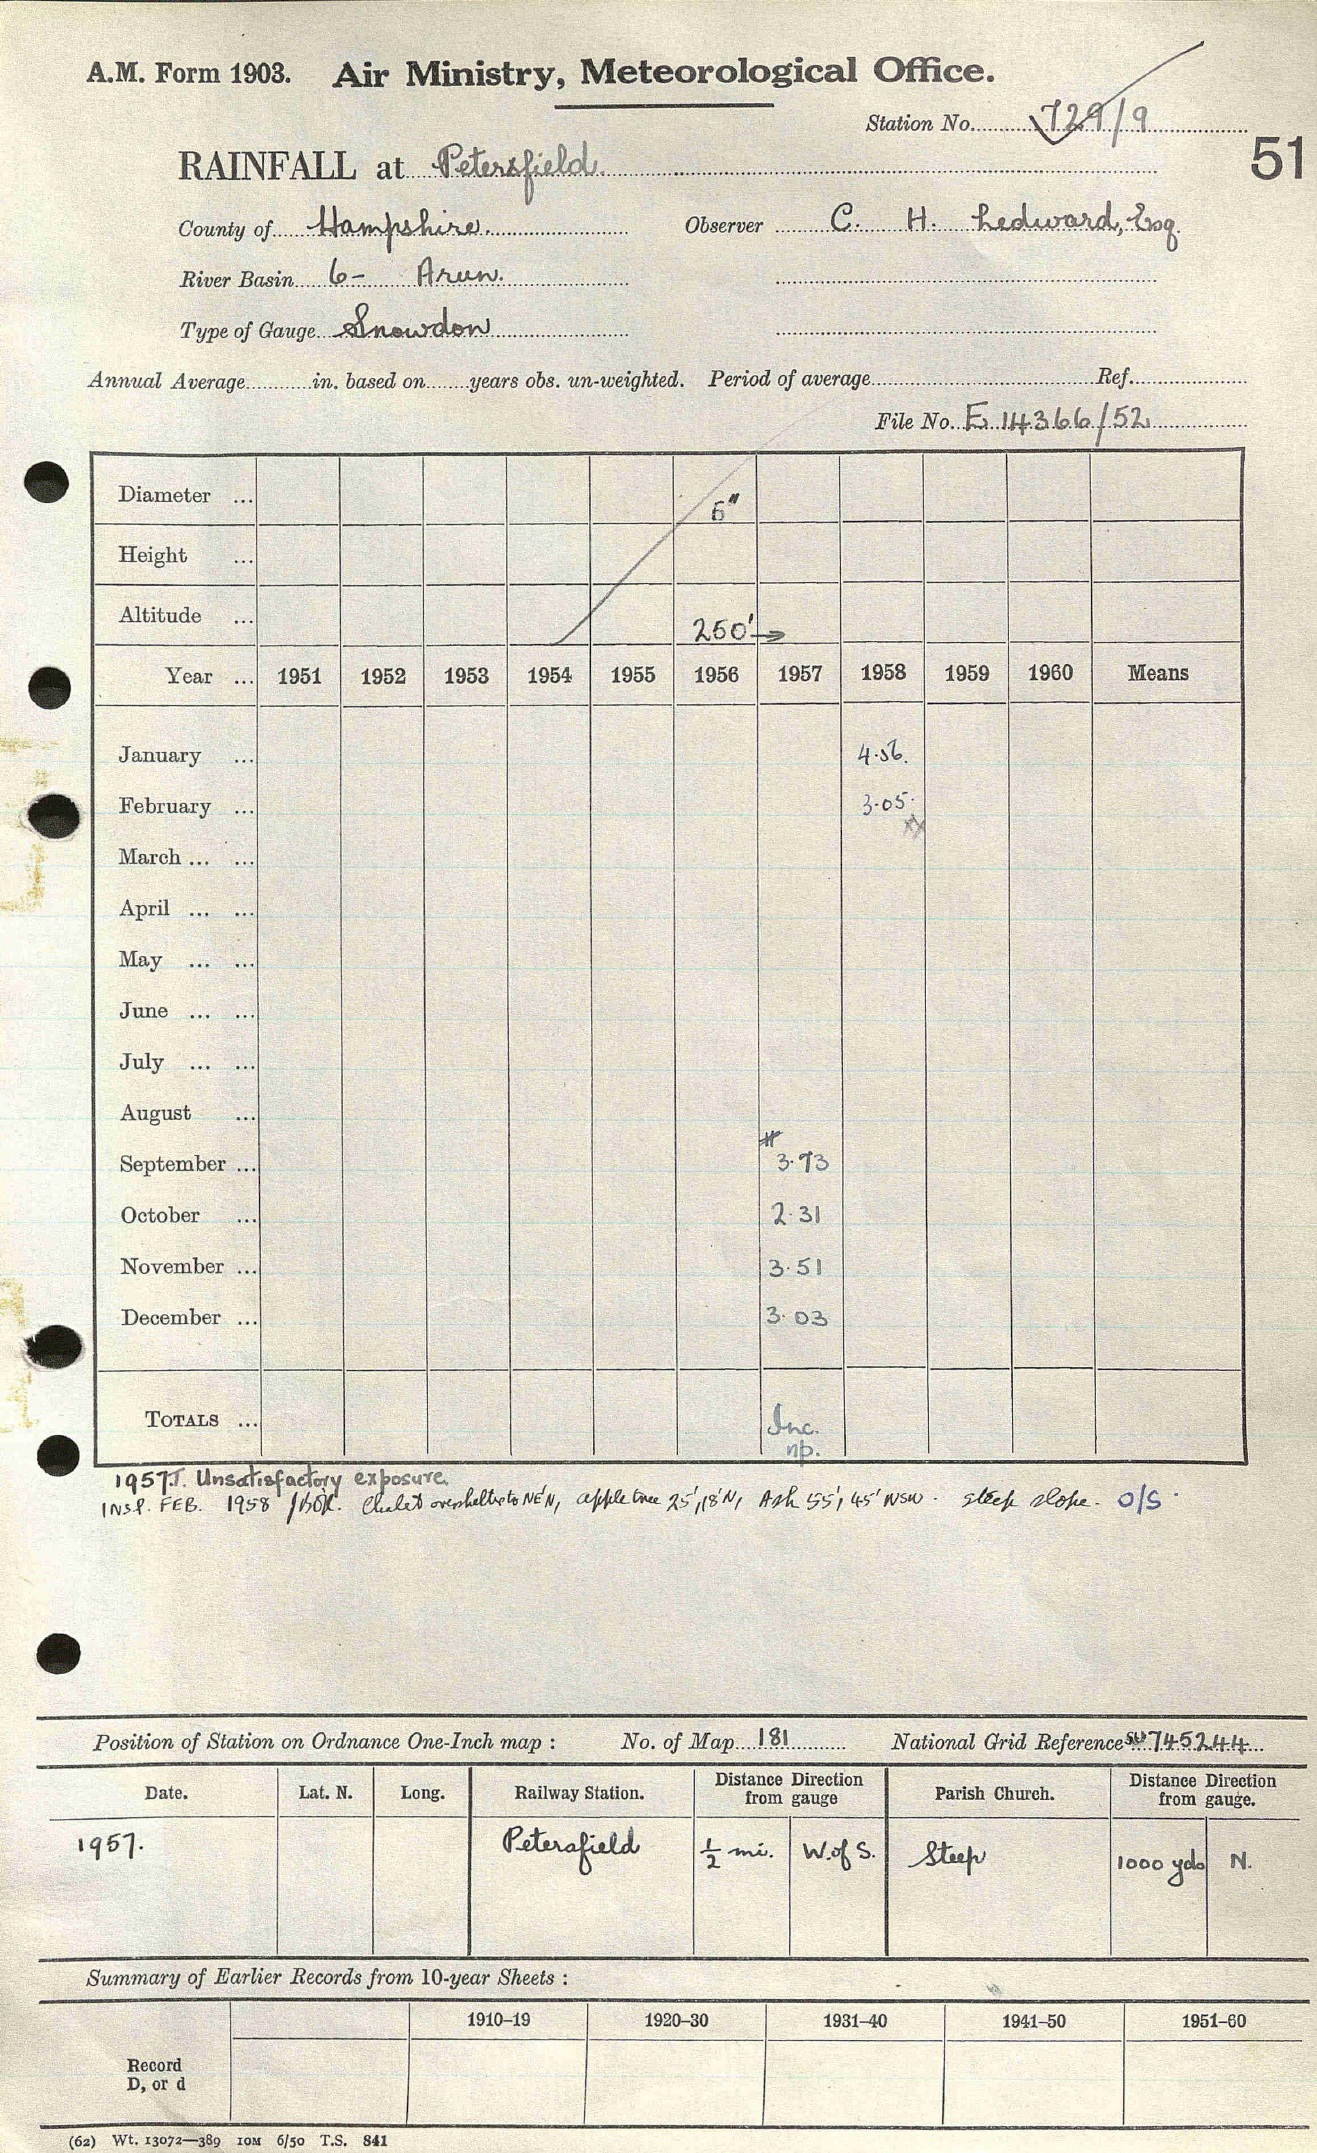 A.M. Form 1903. Air Ministry, Meteorological Office.
Station No. 729/9
51
RAINFALL at Petersfield.
County of Hampshire. Observer C. H. Ledward, Esq.
River Basin 6- Arun.
Type of Gauge Snowdon
Annual Average in. based on years obs. un-weighted. Period of average Ref.
File No. E 14366/52
Diameter ... 5"
Height ...
Altitude ... 250' →
Year ... 1951 1952 1953 1954 1955 1956 1957 1958 1959 1960 Means
January ... 4.56.
February ... 3.05.
xx
March ... ...
April ... ...
May ... ...
June ... ...
July ... ...
August ...
#
September ... 3.73
October ... 2.31
November ... 3.51
December ... 3.03
TOTALS ... Inc.
np.
1957. Unsatisfactory exposure.
INSP. FEB. 1958 Chalet NE'N, apple tree 25', 18'N, Ash 55', 45' WSW. Steep slope. O/S.
Position of Station on Ordnance One-Inch map : No. of Map 181 National Grid Reference SU 745244
Date. Lat. N. Long. Railway Station. Distance Direction from gauge Parish Church. Distance Direction from gauge.
1957. Petersfield ½ mi. W. of S. Steep 1000 yds N.
Summary of Earlier Records from 10-year Sheets :
1910–19 1920–30 1931–40 1941–50 1951–60
Record
D, or d
(62) Wt. 13072—389 10M 6/50 T.S. 841